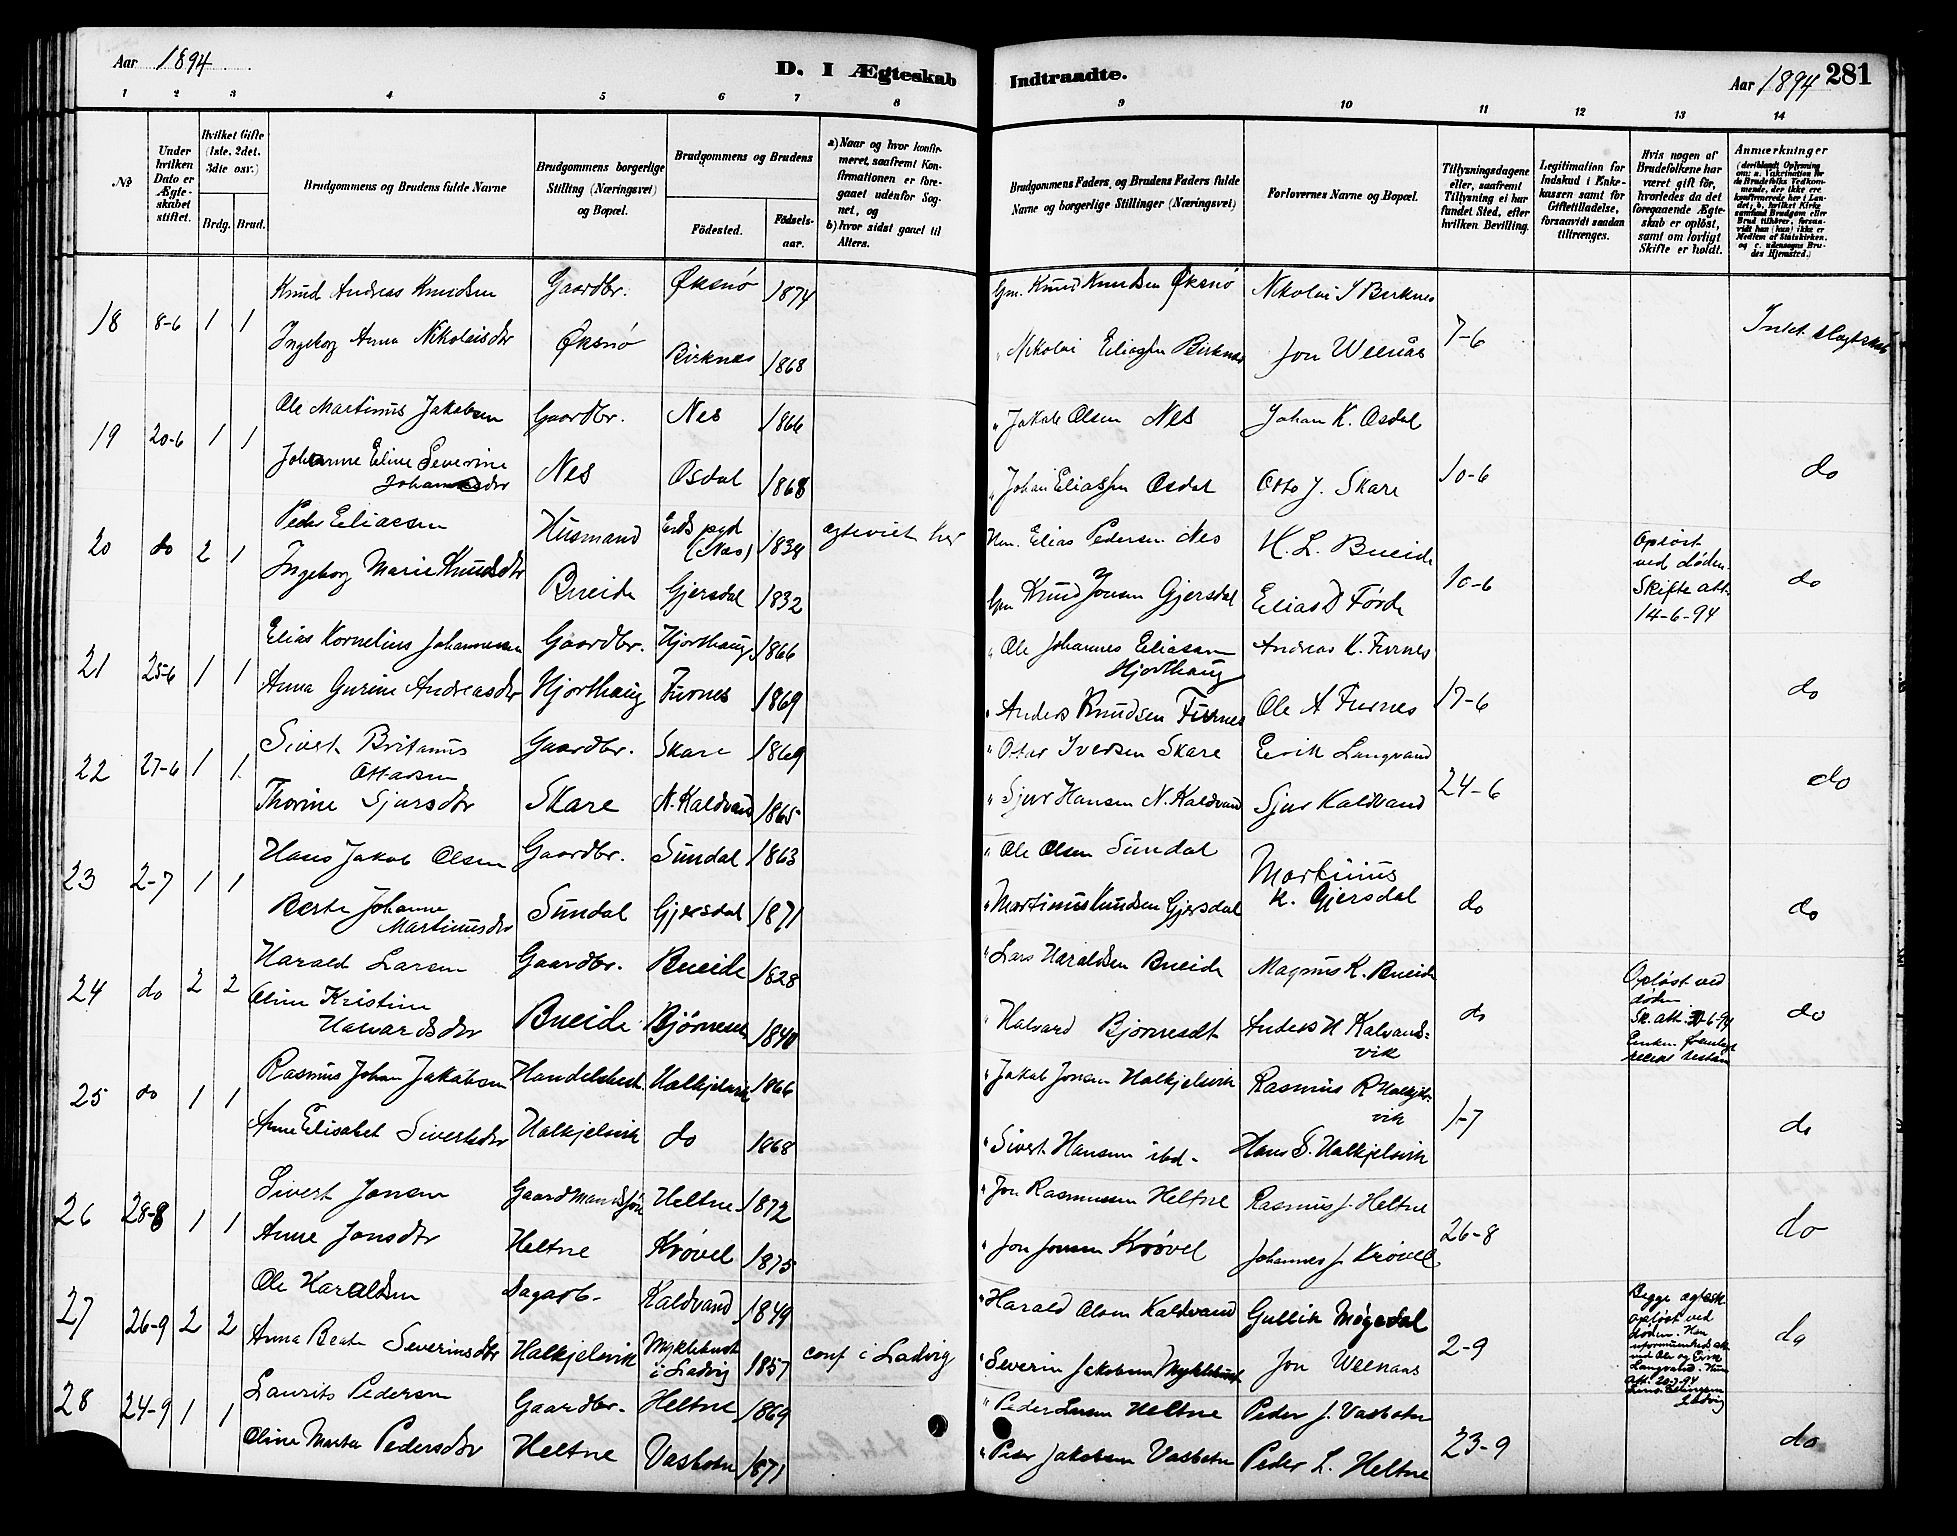 Aar 1894
D. I Ægteskab
Indtraadte.
Aar 1894 281
1 2 3 4 5 6 7 8 9 10 11 12 13 14
№
Under hvilken Dato er Ægteskabet stiftet.
Hvilket Gifte (1ste, 2det, 3die osv.)
Brdg. Brud.
Brudgommens og Brudens fulde Navne
Brudgommens borgerlige Stilling (Næringsvei) og Bopæl.
Brudgommens og Brudens
Fødested.
Fødsels-aar.
a) Naar og hvor konfirmeret, saafremt Konfirmationen er foregaaet udenfor Sognet, og
b) hvor sidst gaaet til Alters.
Brudgommens Faders, og Brudens Faders fulde Navne og borgerlige Stillinger (Næringsvei)
Forlovernes Navne og Bopæl.
Tillysningsdagene eller, saafremt Tillysning ei har fundet Sted, efter hvilken Bevilling.
Legitimation for Indskud i Enkekassen samt for Giftetilladelse, forsaavidt saadan tiltrænges.
Hvis nogen af Brudefolkene har været gift før, hvorledes da det foregaaende Ægteskab er opløst, samt om lovligt Skifte er holdt.
Anmærkninger
18 8-6 1 1 Knud Andreas Knudsen Gaardbr. Øksnø 1874 Gm. Knud Knudsen Øksnø Nikolai J Birknes
Ingeborg Anna Nikolaisdtr Øksnø Birknes 1868 " Nikolai Eliassen Birknes Jon Welnås 7-6 Intet slagtskab
19 20-6 1 1 Ole Martinus Jakobsen Gaardbr. Nes 1866 " Jakob Olsen Nes Johan K. Osdal
Johanne Eline Severine Johansdtr Nes Osdal 1868 " Johan Eliassen Osdal Otto J. Skare 10-6 do
20 do 2 1 Peder Eliassen Husmand (Nes) 1834 Hm. Elias Pedersen Nes H. L. Bueide Opløst ved døden. Skifte att. 14-6-94
Ingeborg Marie Knudsdtr Bueide Gjersdal 1832 Gm Knud Jonsen Gjersdal Elias D Førde 10-6 do
21 25-6 1 1 Elias Kornelius Johannessen Gaardbr. Hjorthaug 1866 " Ole Johannes Eliassen Hjorthaug Andreas K. Furnes
Anna Gurine Andreasdtr Hjorthaug Furnes 1869 " Anders Knudsen Furnes Ole A Furnes 17-6 do
22 27-6 1 1 Sivert Britanus Ottarsen Gaardbr. Skare 1869 " Ottar Iversen Skare Eerik Langvand
Thorine Sjursdtr Skare N. Kaldvand 1865 " Sjur Hansen N. Kaldvand Sjur Kaldvand 24-6 do
23 2-7 1 1 Hans Jakob Olsen Gaardbr. Sundal 1863 " Ole Olsen Sundal Martinus K. Gjersdal
Berte Johanne Martinusdtr Sundal Gjersdal 1871 " Martinus Knudsen Gjersdal do do
24 do 2 2 Harald Larsen Gaardbr. Bueide 1828 " Lars Haraldsen Bueide Magnus K. Bueide Opløst ved døden
Oline Kristine Halvardsdtr Bueide Bjørnesdt 1840 " Halvard Bjørnesdt Anders H Kalvandsvik do do
25 do 1 1 Rasmus Johan Jakobsen Handelsbest. Halkjelsvik 1866 " Jakob Jonsen Halkjelsvik Rasmus R Halkjelsvik
Anne Elisabet Sivertsdtr Halkjelsvik do 1868 " Sivert Hansen ibd. Hans S. Halkjelsvik 1-7 do
26 28-8 1 1 Sivert Jonsen Gaardmandssøn Heltne 1872 " Jon Rasmussen Heltne Rasmus J. Heltne
Anne Jonsdtr Heltne Krøvel 1875 " Jon Jonsen Krøvel Johannes J. Krøvel 26-8 do
27 26-9 2 2 Ole Haraldsen Dagarb. Kaldvand 1849 " Harald Olsen Kaldvand Gullik Møgedal Begge ægtesk. opløst ved døden.
Anna Beate Severinsdtr Halkjelsvik Myklebust i Ladvig 1857 conf i Ladvig " Severin Jakobsen Myklebust Jon Welnaas 2-9 do
28 24-9 1 1 Laurits Pedersen Gaardbr. Heltne 1869 " Peder Larsen Heltne Peder J. Vasbotn
Oline Marta Pedersdtr Heltne Vasbotn 1871 " Peder Jakobsen Vasbotn Peder L. Heltne 23-9 do